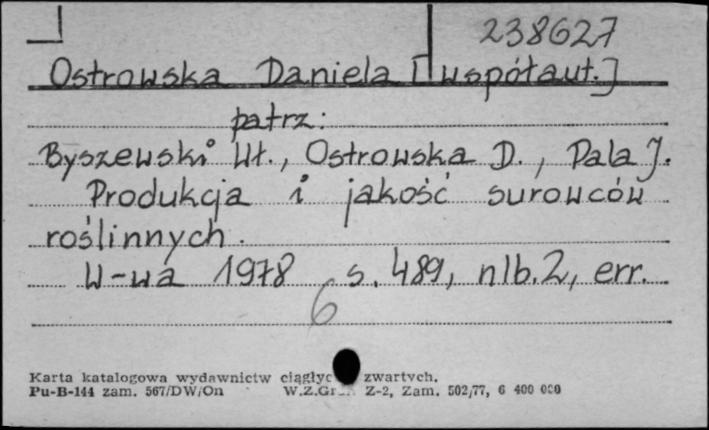 238627
Ostrowska Daniela [współaut.]
patrz:
Byszewski Wł., Ostrowska D., Pala J.
Produkcja i jakość surowców
roślinnych.
W-wa 1978 s. 489, nlb. 2, err.
6
Karta katalogowa wydawnictw zwartych.
Pu-B-144 zam. 567/DW/On W.Z.Gr Z-2, Zam. 502/77, 6 400 000